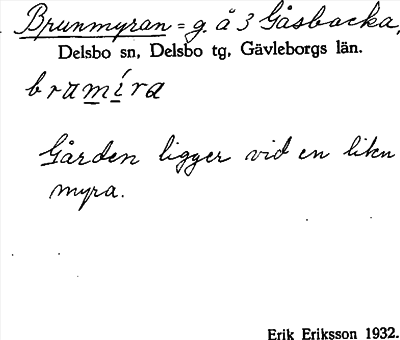 Brunmyran = g. å 3 Gåsbacka,
Delsbo sn, Delsbo tg, Gävleborgs län.
bramíra
Gården ligger vid en liten
myra.
Erik Eriksson 1932.